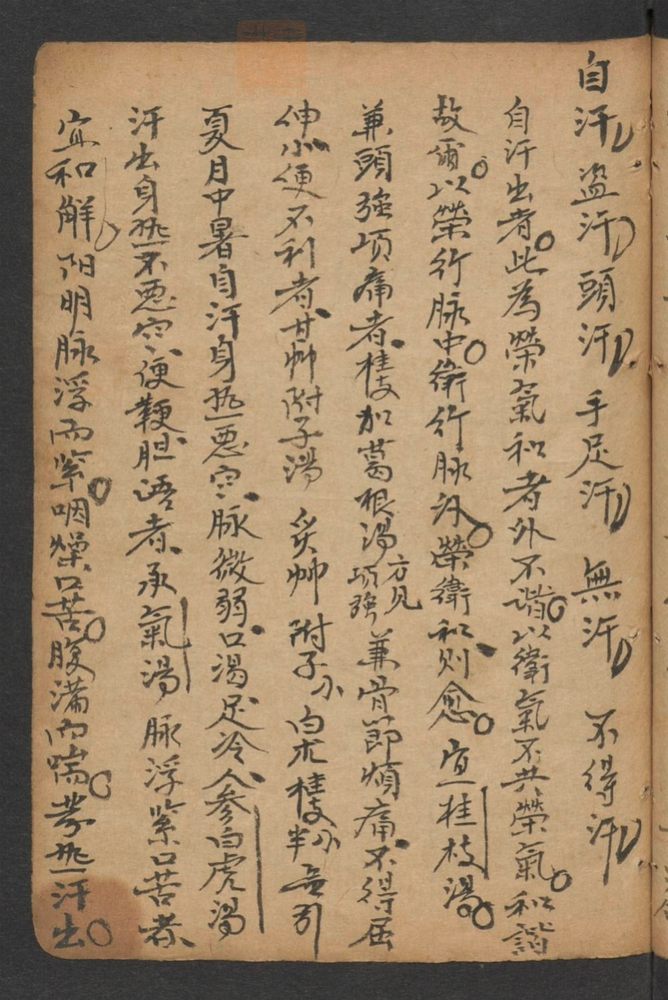 自汗 盗汗 頭汗 手足汗 無汗 不得汗
自汗出者此為榮氣和者外不諧以衛氣不共榮氣和諧
故爾以榮行脉中衛行脉外榮衛和則愈宜桂枝湯
兼頭強项痛者桂枝加葛根湯方見项強兼骨節煩痛不得屈
伸小便不利者甘艸附子湯 炙艸 附子 白朮 桂
夏月中暑自汗身热恶寒脉微弱口渴足冷人参白虎湯
汗出身热不恶寒便鞕胆语者承氣湯 脉浮紧口苦者
宜和解阳明脉浮而紧咽燥口苦腹满而喘發热汗出